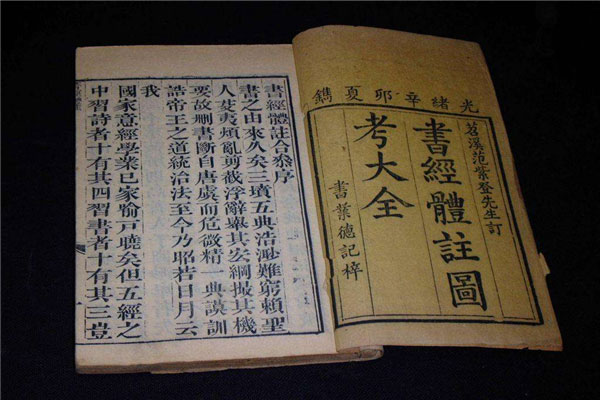 光緒辛卯夏鐫
苕溪范紫登先生訂
書經體註圖
考大全
書業德記梓
書經體註合叅序
書之由來久矣三墳五典浩渺難窮賴聖
人芟夷煩亂剪截浮辭舉其宏綱撮其機
要故刪書斷自唐虞而危微精一典謨訓
誥帝王之道統治法至今乃昭若日月云
我
國家意經學業已家喻戸曉矣但五經之
中習詩者十有其四習書者十有其三豈